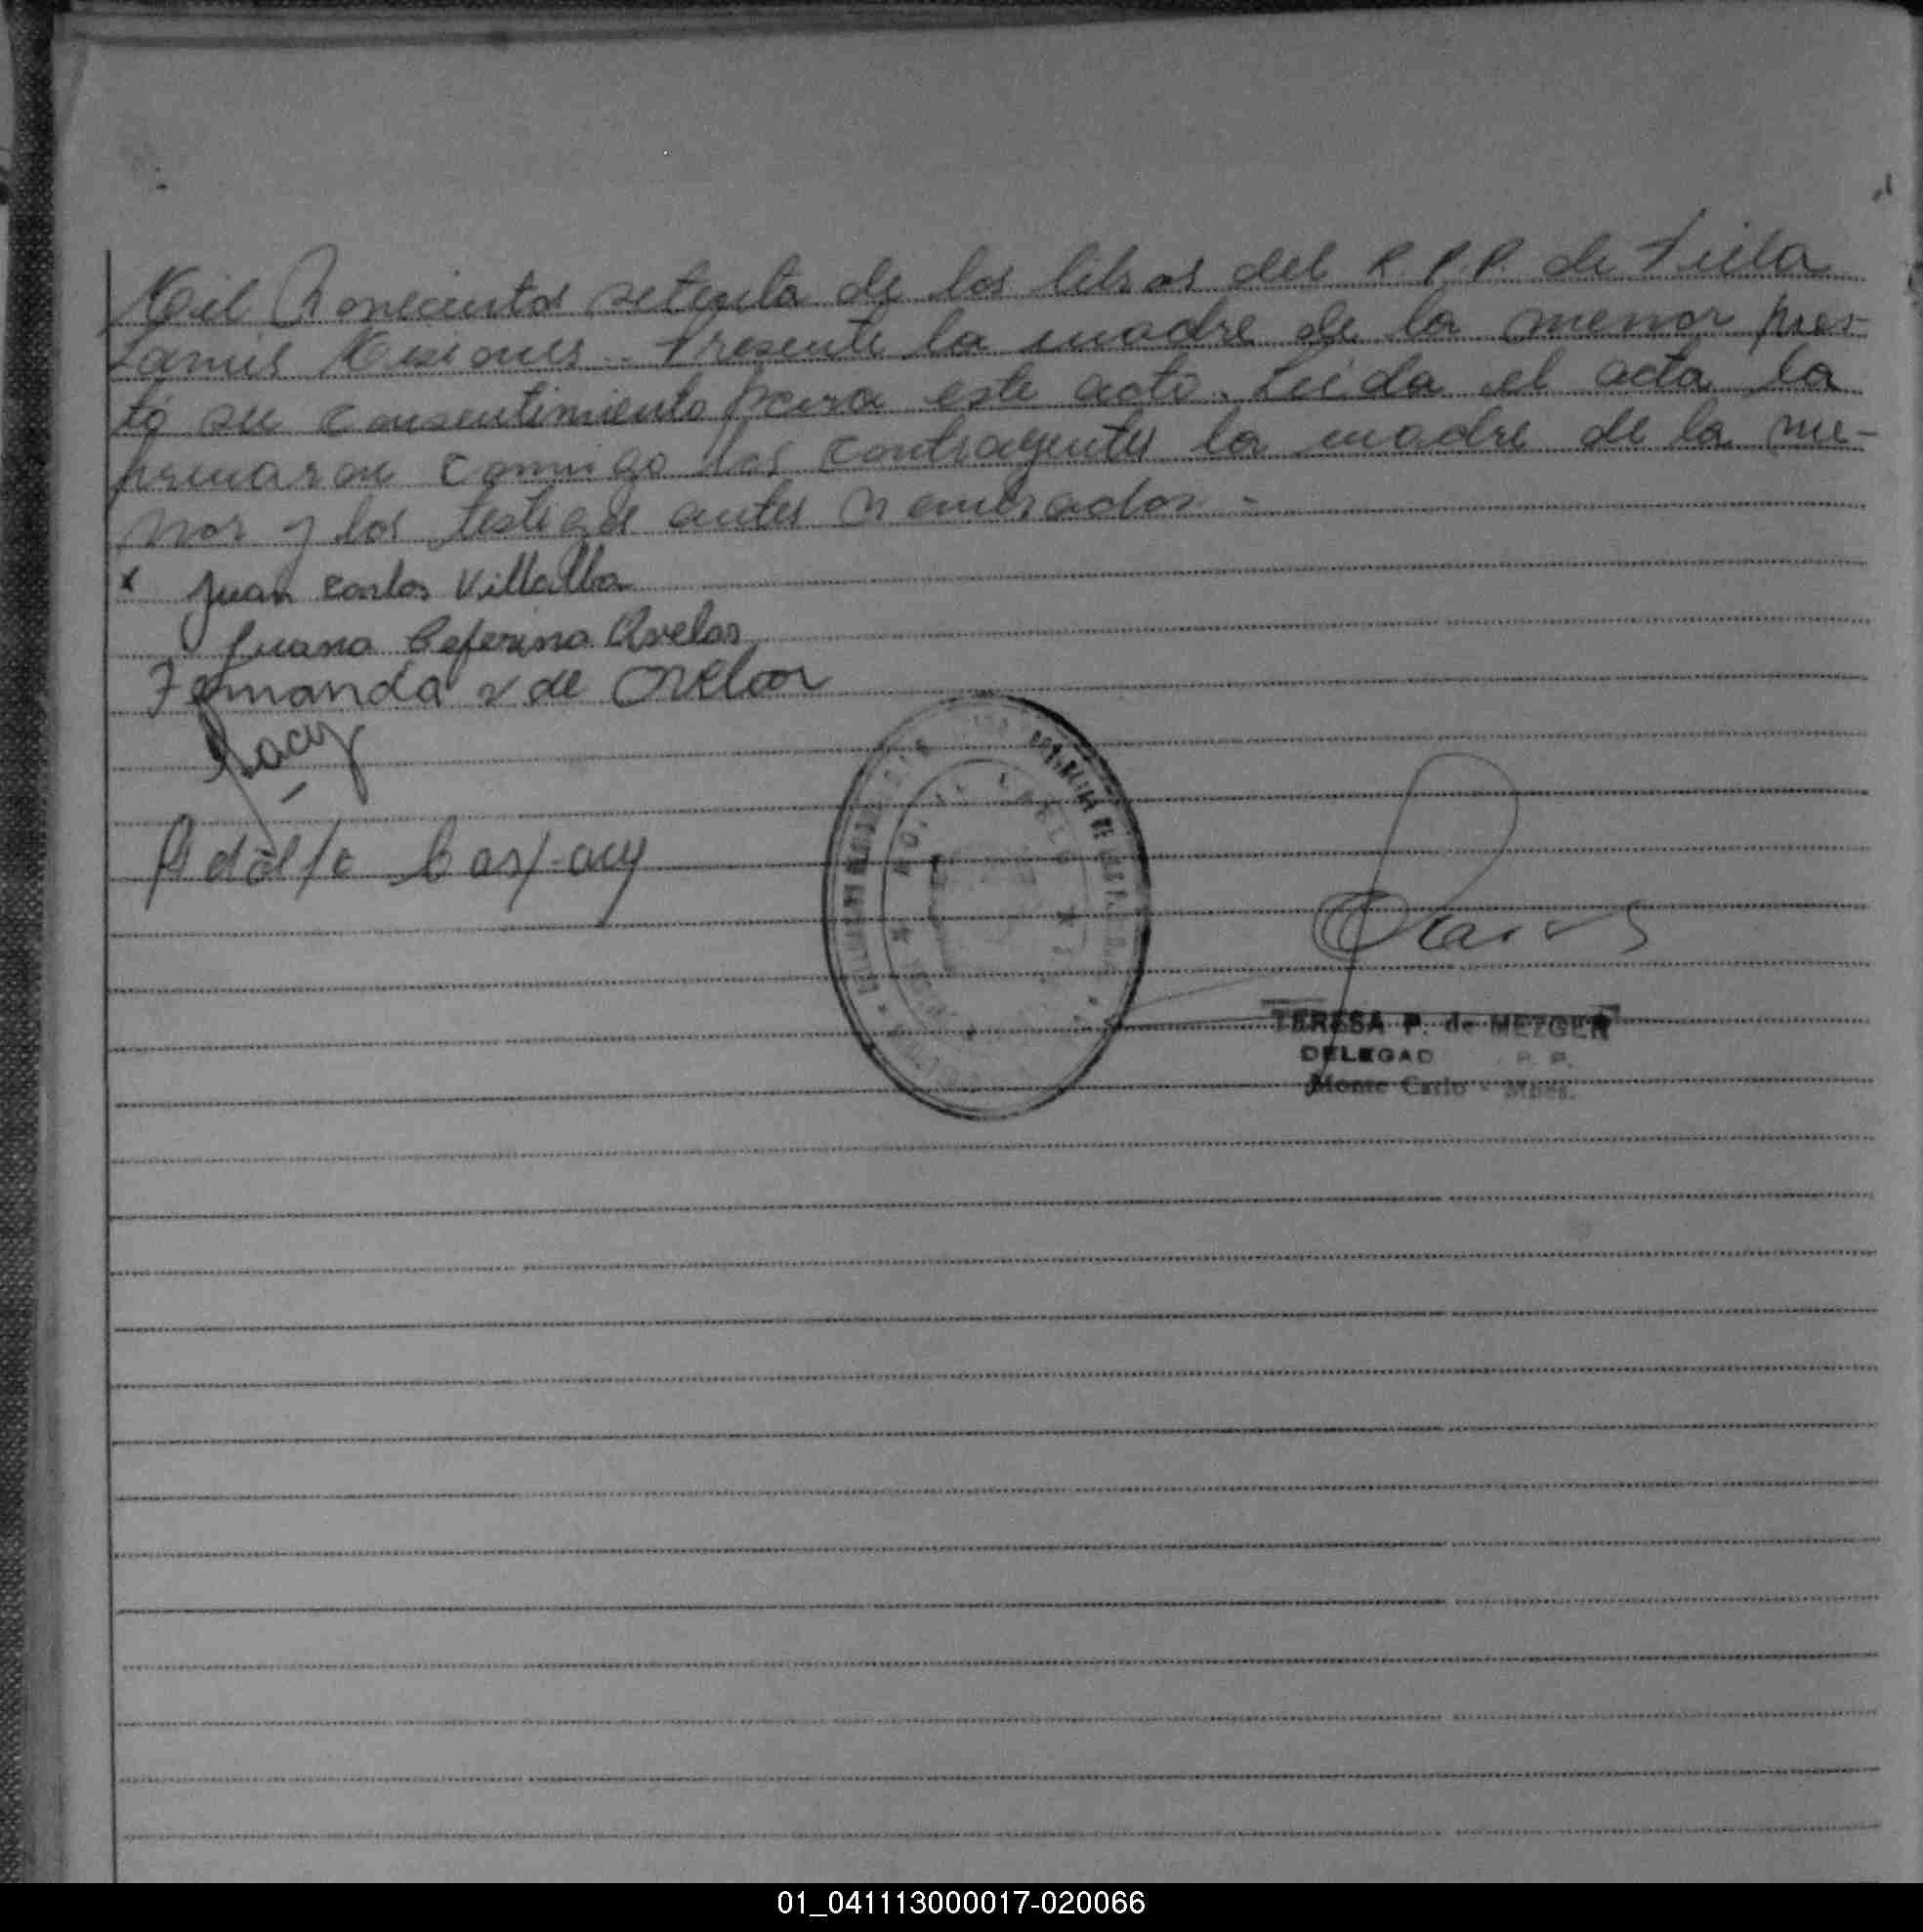 Mil Novecientos setenta de los libros del R.P.P. de Villa
Lanus Misiones.. Presente la madre de la menor pres-
tó su consentimiento para este acto. Leída el acta la
firmaron conmigo los contrayentes la madre de la me-
nor y los testigos antes nombrados. -
x Juan Carlos Villalba
Juana Ceferina Avelar
Fernanda v de Avelar
Adolfo
TERESA P. de MEZGER
DELEGAD R. P.
Monte Carlo - Mnes.
01_041113000017-020066